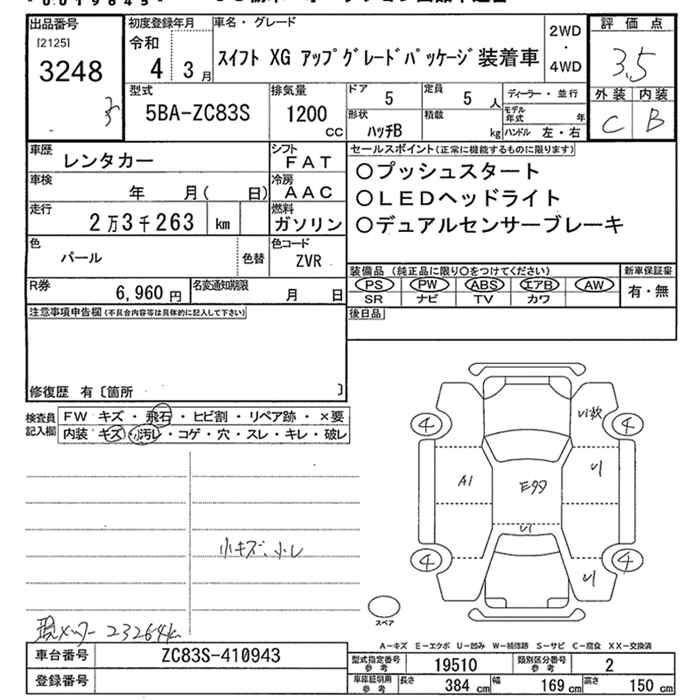 出品番号
[2125]
3248
初度登録年月
令和
4 3月
車名・グレード
スイフト XG アップグレードパッケージ装着車
2WD
・
4WD
評価点
3.5
外装 内装
C B
型式
5BA-ZC83S
排気量
1200
cc
ドア
5
定員
5 人
形状
ハッチB
積載
kg
ディーラー・並行
モデル年式 年
ハンドル 左・右
車歴
レンタカー
シフト
FAT
車検
年 月( 日)
冷房
AAC
走行
2万3千263 km
燃料
ガソリン
色
パール
色替
色コード
ZVR
R券
6,960円
名変通知期限
月 日
セールスポイント(正常に機能するものに限ります)
○プッシュスタート
○LEDヘッドライト
○デュアルセンサーブレーキ
装備品(純正品に限り○をつけてください)
新車保証書
PS PW ABS エアB AW
有・無
SR ナビ TV カワ
後日品
注意事項申告欄(不具合内容等は具体的に記入して下さい)
修復歴 有〔箇所 〕
検査員記入欄
FW キズ・飛石・ヒビ割・リペア跡・×要
内装 キズ・汚レ・コゲ・穴・スレ・キレ・破レ
小キズ、小レ
現メーター 23264k
4 4
4 4
A1
U1
U1
U1
スペア
A-キズ E-エクボ U-凹み W-補修跡 S-サビ C-腐食 XX-交換済
車台番号
ZC83S-410943
登録番号
型式指定番号
参考
19510
類別区分番号
参考
2
車庫証明用
参考
長さ 384 cm
幅 169 cm
高さ 150 cm